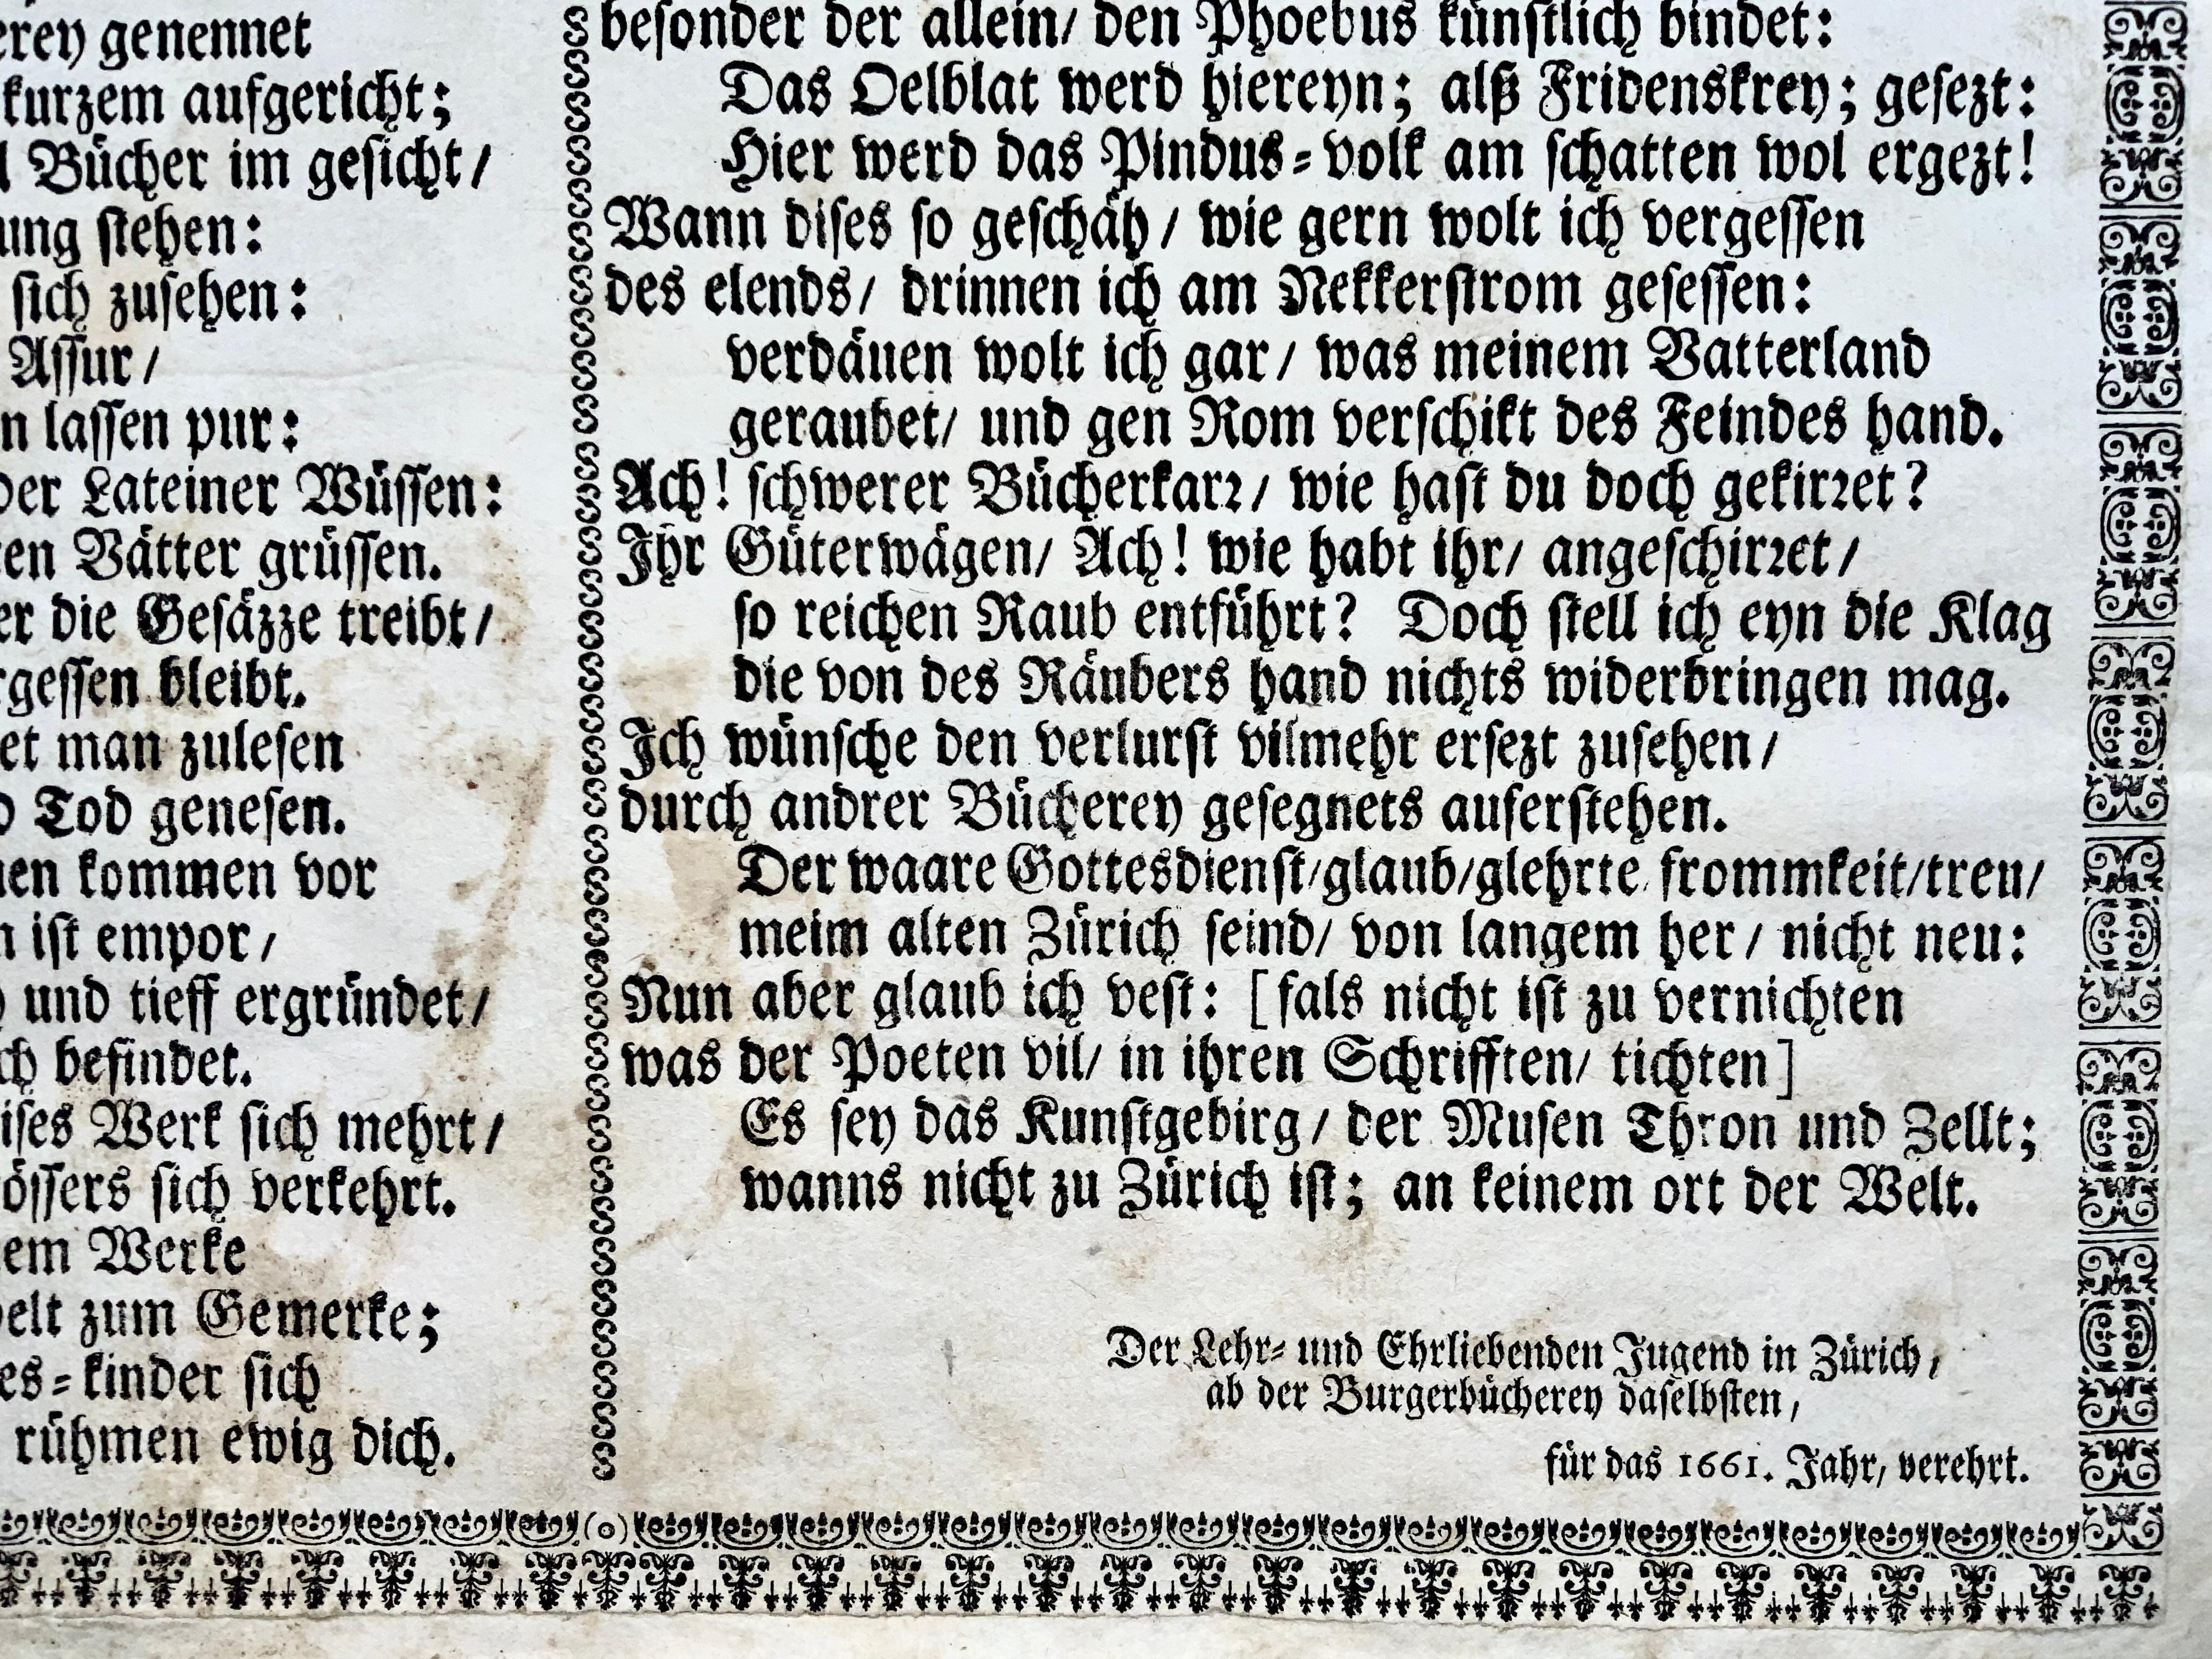 genennet
kurzem aufgericht;
Bücher im gesicht/
stehen:
sich zusehen:
Assur/
lassen pur:
der Lateiner Wüssen:
Vätter grüssen.
die Gesäzze treibt/
bleibt.
man zulesen
Tod genesen.
kommen vor
ist empor/
und tieff ergründet/
befindet.
Werk sich mehrt/
sich verkehrt.
Werke
zum Gemerke;
kinder sich
rühmen ewig dich.
besonder der allein/ den Phoebus künstlich bindet:
Das Oelblat werd hiereyn; alß Fridenskrey; gesezt:
Hier werd das Pindus-volk am schatten wol ergezt!
Wann dises so geschäh/ wie gern wolt ich vergessen
des elends/ drinnen ich am Nekkerstrom gesessen:
verdäuen wolt ich gar/ was meinem Vatterland
geraubet/ und gen Rom verschikt des Feindes hand.
Ach! schwerer Bücherkarr/ wie hast du doch gekirret?
Ihr Güterwägen/ Ach! wie habt ihr/ angeschirret/
so reichen Raub entführt? Doch stell ich eyn die Klag
die von des Räubers hand nichts widerbringen mag.
Ich wünsche den verlurst vilmehr ersezt zusehen/
durch andrer Bücherey gesegnets auferstehen.
Der waare Gottesdienst/glaub/glehrte frommkeit/treu/
meim alten Zürich seind/ von langem her/ nicht neu:
Nun aber glaub ich vest: [fals nicht ist zu vernichten
was der Poeten vil/ in ihren Schrifften/ tichten]
Es sey das Kunstgebirg/ der Musen Thron und Zellt;
wanns nicht zu Zürich ist; an keinem ort der Welt.
Der Lehr- und Ehrliebenden Jugend in Zürich,
ab der Burgerbücherey daselbsten,
für das 1661. Jahr, verehrt.